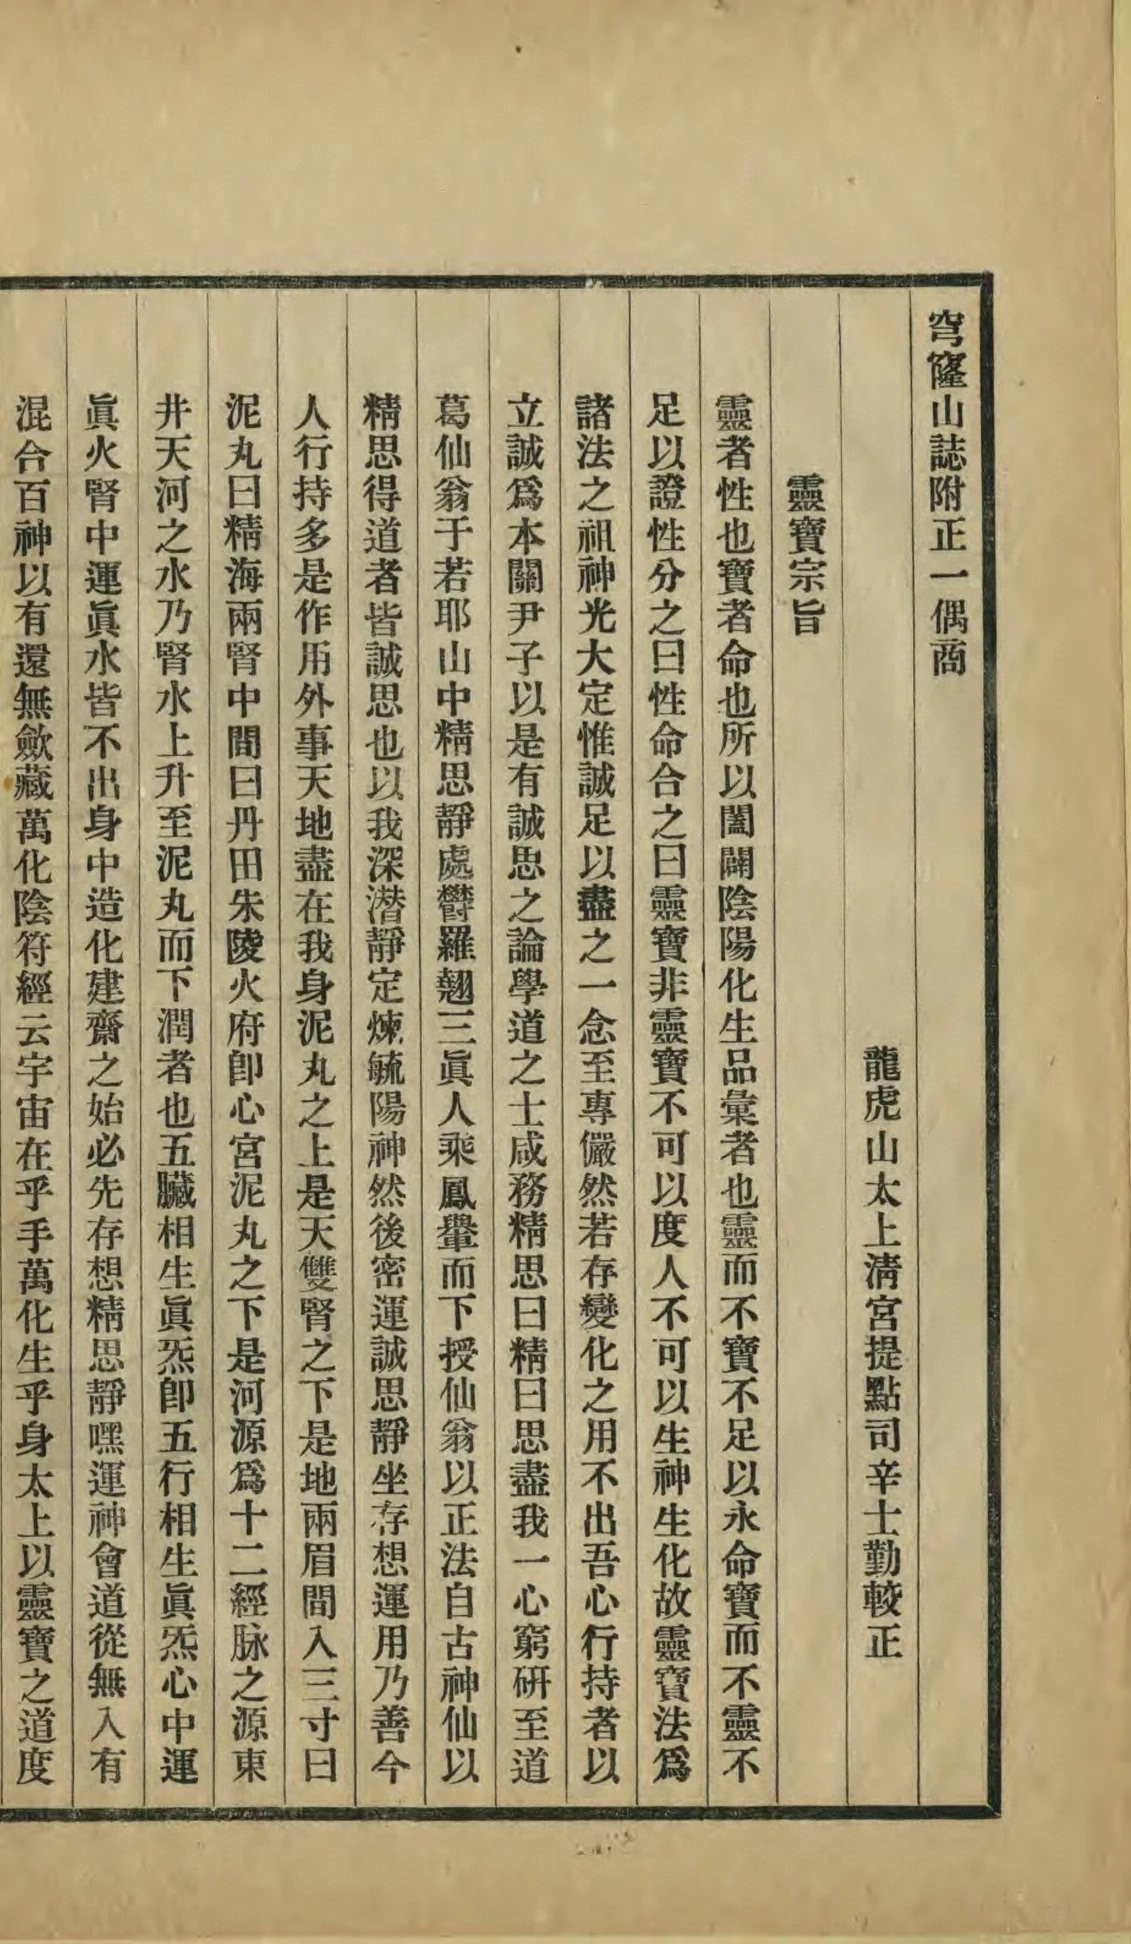 穹窿山誌附正一偶商
龍虎山太上淸宮提點司辛士勤較正
靈寶宗旨
靈者性也寶者命也所以闔闢陰陽化生品彙者也靈而不寶不足以永命寶而不靈不
足以證性分之曰性命合之曰靈寶非靈寶不可以度人不可以生神生化故靈寶法爲
諸法之祖神光大定惟誠足以盡之一念至專儼然若存變化之用不出吾心行持者以
立誠爲本關尹子以是有誠思之論學道之士咸務精思曰精曰思盡我一心窮硏至道
葛仙翁于若耶山中精思靜處欝羅翹三眞人乘鳳轝而下授仙翁以正法自古神仙以
精思得道者皆誠思也以我深潛靜定煉毓陽神然後密運誠思靜坐存想運用乃善今
人行持多是作用外事天地盡在我身泥丸之上是天雙腎之下是地兩眉間入三寸曰
泥丸曰精海兩腎中間曰丹田朱陵火府卽心宮泥丸之下是河源爲十二經脉之源東
井天河之水乃腎水上升至泥丸而下潤者也五臟相生眞炁卽五行相生眞炁心中運
眞火腎中運眞水皆不出身中造化建齋之始必先存想精思靜嘿運神會道從無入有
混合百神以有還無歛藏萬化陰符經云宇宙在乎手萬化生乎身太上以靈寶之道度